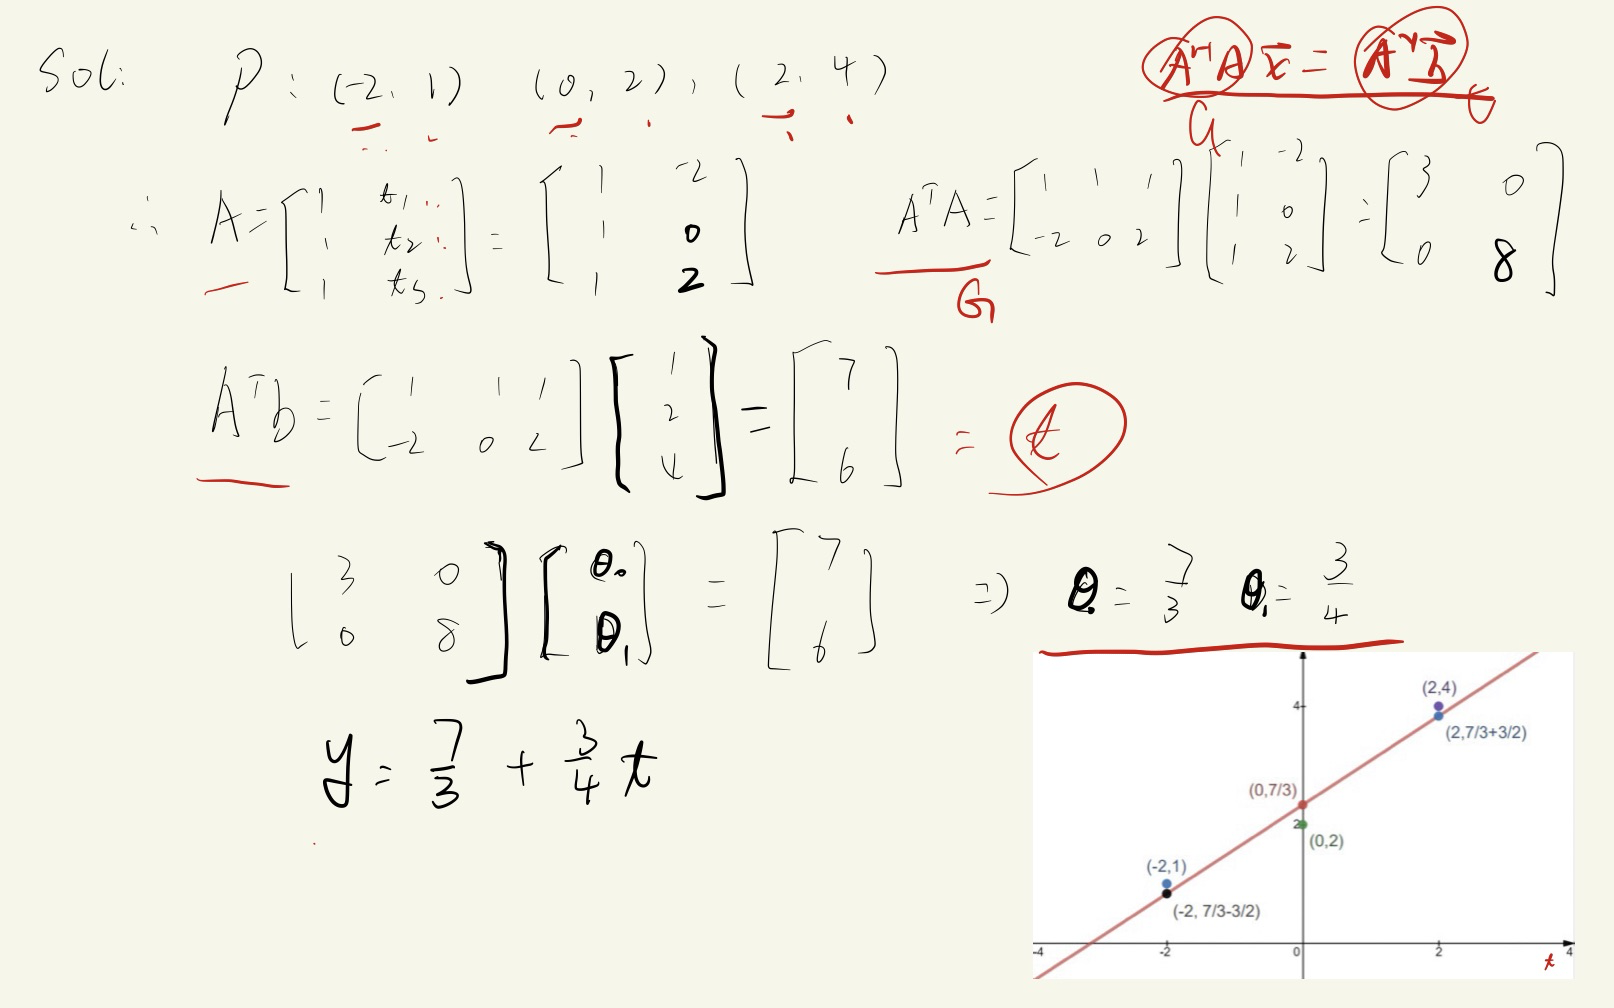 Sol: P : (-2, 1) (0, 2), (2, 4)
AᵀA x⃗ = Aᵀ b⃗
G t
∴ A = [1 t₁; 1 t₂; 1 t₃] = [1 -2; 1 0; 1 2]
AᵀA = [1 1 1; -2 0 2] [1 -2; 1 0; 1 2] = [3 0; 0 8]
G
Aᵀb = [1 1 1; -2 0 2] [1; 2; 4] = [7; 6] = t
[3 0; 0 8] [θ₀; θ₁] = [7; 6] ⇒ θ₀ = 7/3 θ₁ = 3/4
y = 7/3 + 3/4 t
(2,4)
4
(2,7/3+3/2)
(0,7/3)
2
(0,2)
(-2,1)
(-2, 7/3-3/2)
-4 -2 0 2 4
t